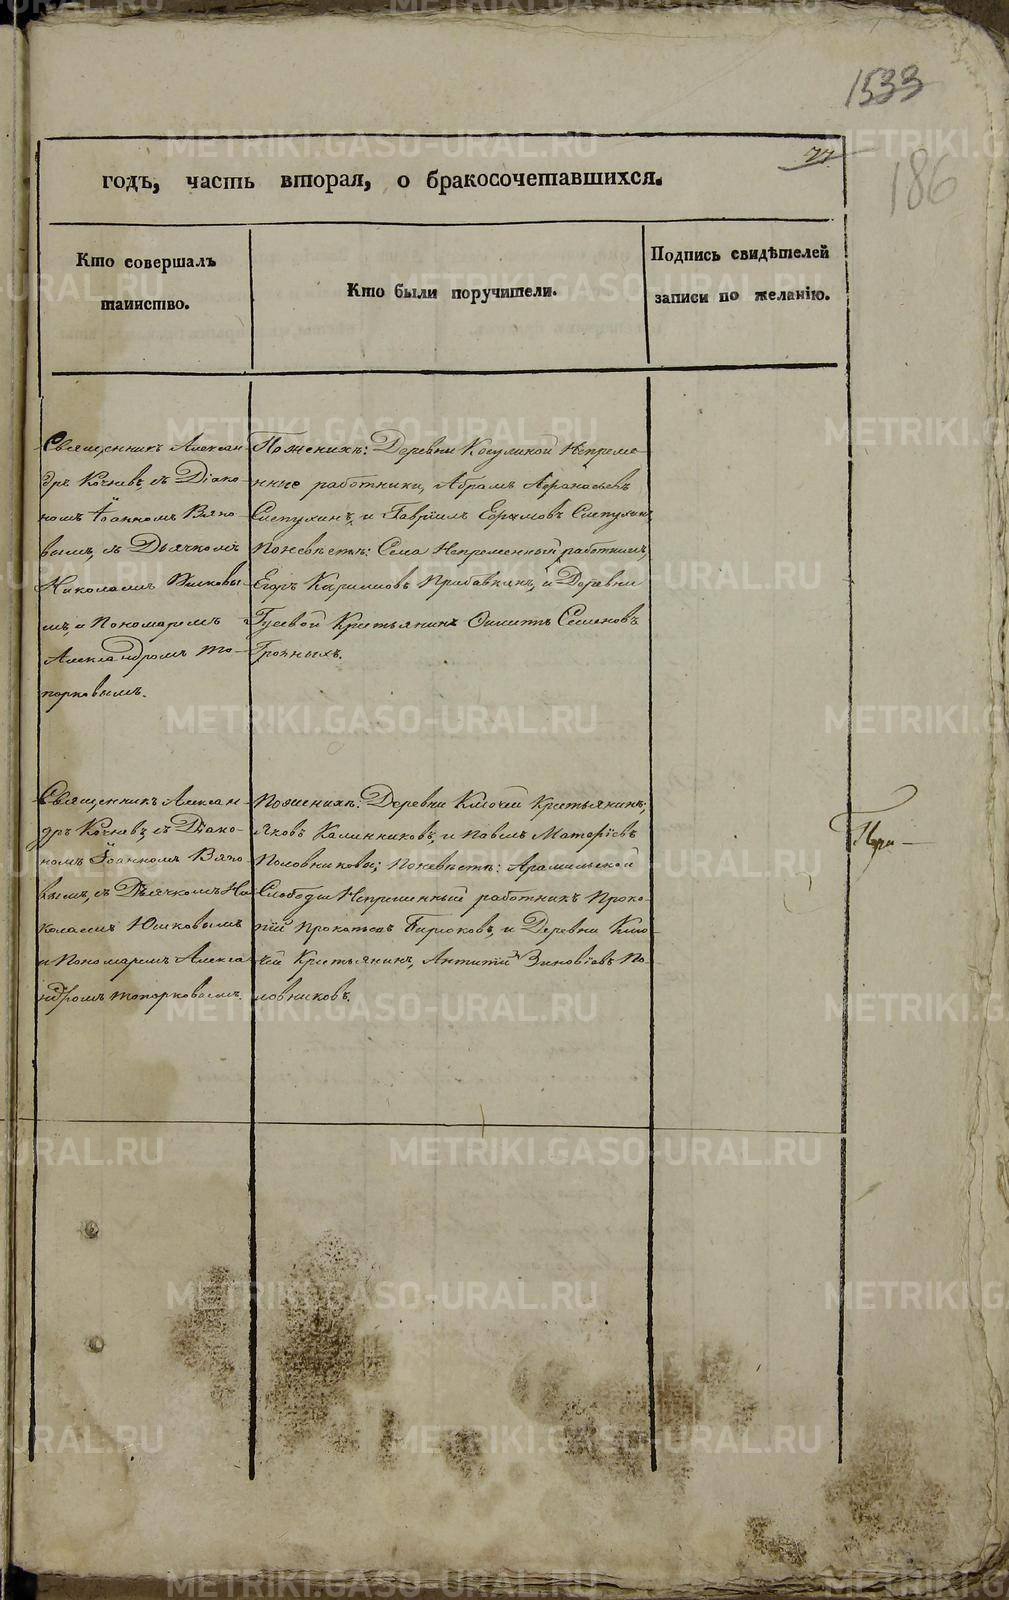 1533
77
186
годъ, часть вторая, о бракосочетавшихся.
Кто совершалъ
таинство.
Кто были поручители.
Подпись свидѣтелей
записи по желанію.
Священникъ Алексан-
дръ Кочневъ, съ Діако-
номъ Іоанномъ Вяно-
вымъ, съ Дьячкомъ
Николаемъ Юшковы-
мъ, и Пономаремъ
Александромъ То-
порковымъ.
Поженихѣ: Деревни Косулиной Непреме-
нные работники, Абрамъ Афанасьевъ
Слепухинъ, и Гаврiилъ Ефимовъ Слепухинъ,
Поневѣстѣ: Села Непременный работникъ,
Егоръ Карпиловъ Прибавкинъ, и Деревни
Гусевой Крестьянинъ Семеновъ
Грозныхъ.
Священникъ Алексан-
дръ Кочневъ, съ Діако-
номъ Іоанномъ Вяно-
вымъ, съ Дьячкомъ Ни-
колаемъ Юшковымъ
и Пономаремъ Алекса-
ндромъ Топорковымъ.
Поженихѣ: Деревни Ключей Крестьянинъ,
Яковъ Калинниковъ, и Павелъ
Половниковы; Поневѣстѣ: Арамильской
Слободы Непременный работникъ Проко-
пій Прокопьевъ Бирюковъ, и Деревни Клю-
чей Крестьянинъ, Зиновіевъ По-
ловниковъ.
METRIKI.GASO-URAL.RU